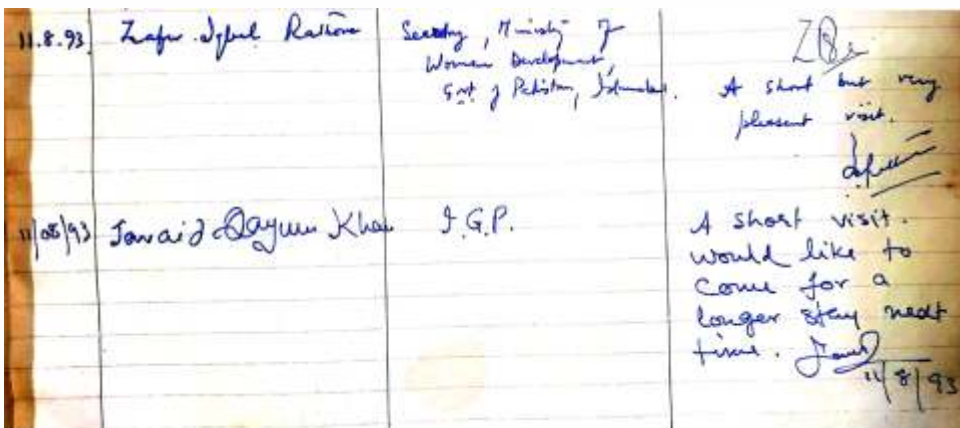 11.8.93 Zafar Iqbal Rathore Secretary, Ministry of
Women Development,
Govt of Pakistan, Islamabad.
A short but very
pleasant visit.
11/08/93 Javaid Qayum Khan I.G.P. A short visit.
would like to
come for a
longer stay next
time.
11/8/93